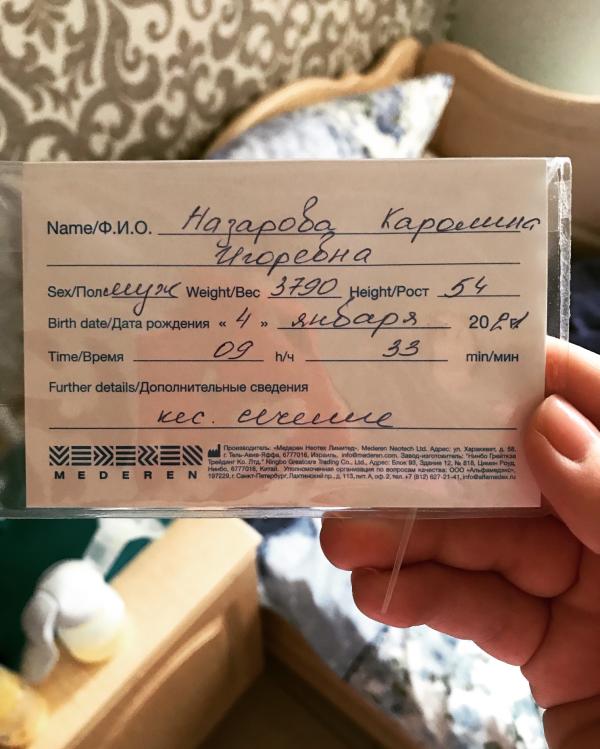 Name/Ф.И.О. Назарова Каролина
Игоревна
Sex/Пол муж Weight/Вес 3790 Height/Рост 54
Birth date/Дата рождения « 4 » января 20
Time/Время 09 h/ч 33 min/мин
Further details/Дополнительные сведения
кес. сечение
Производитель: «Медерен Неотех Лимитед», Mederen Neotech Ltd. Адрес: ул. Харакевет, д. 58,
г. Тель-Авив-Яффа, 6777016, Израиль, info@mederen.com. Завод-изготовитель: «Нинбо Грейткэа
Трейдинг Ко. Лтд.» Ningbo Greatcare Trading Co., Ltd., Адрес: Блок 93, Здание 12, № 818, Цимин Роуд,
Нинбо, Китай. Уполномоченная организация по вопросам качества: ООО «Альфамедэкс»,
197229, г. Санкт-Петербург, Лахтинский пр., д. 113, лит. А, оф. 2, тел. +7 (812) 627-21-41, info@alfamedex.ru
MEDEREN